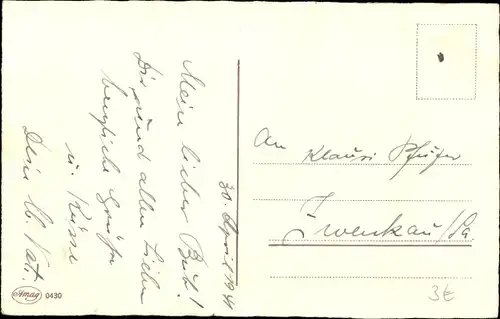 30. April 1941
Mein lieber Bub!
Dir und allen Lieben
herzliche Grüße
u. Küsse
Dein lb. Vati.
An
Klausi
Zwenkau/Sa
Amag 0430
3€